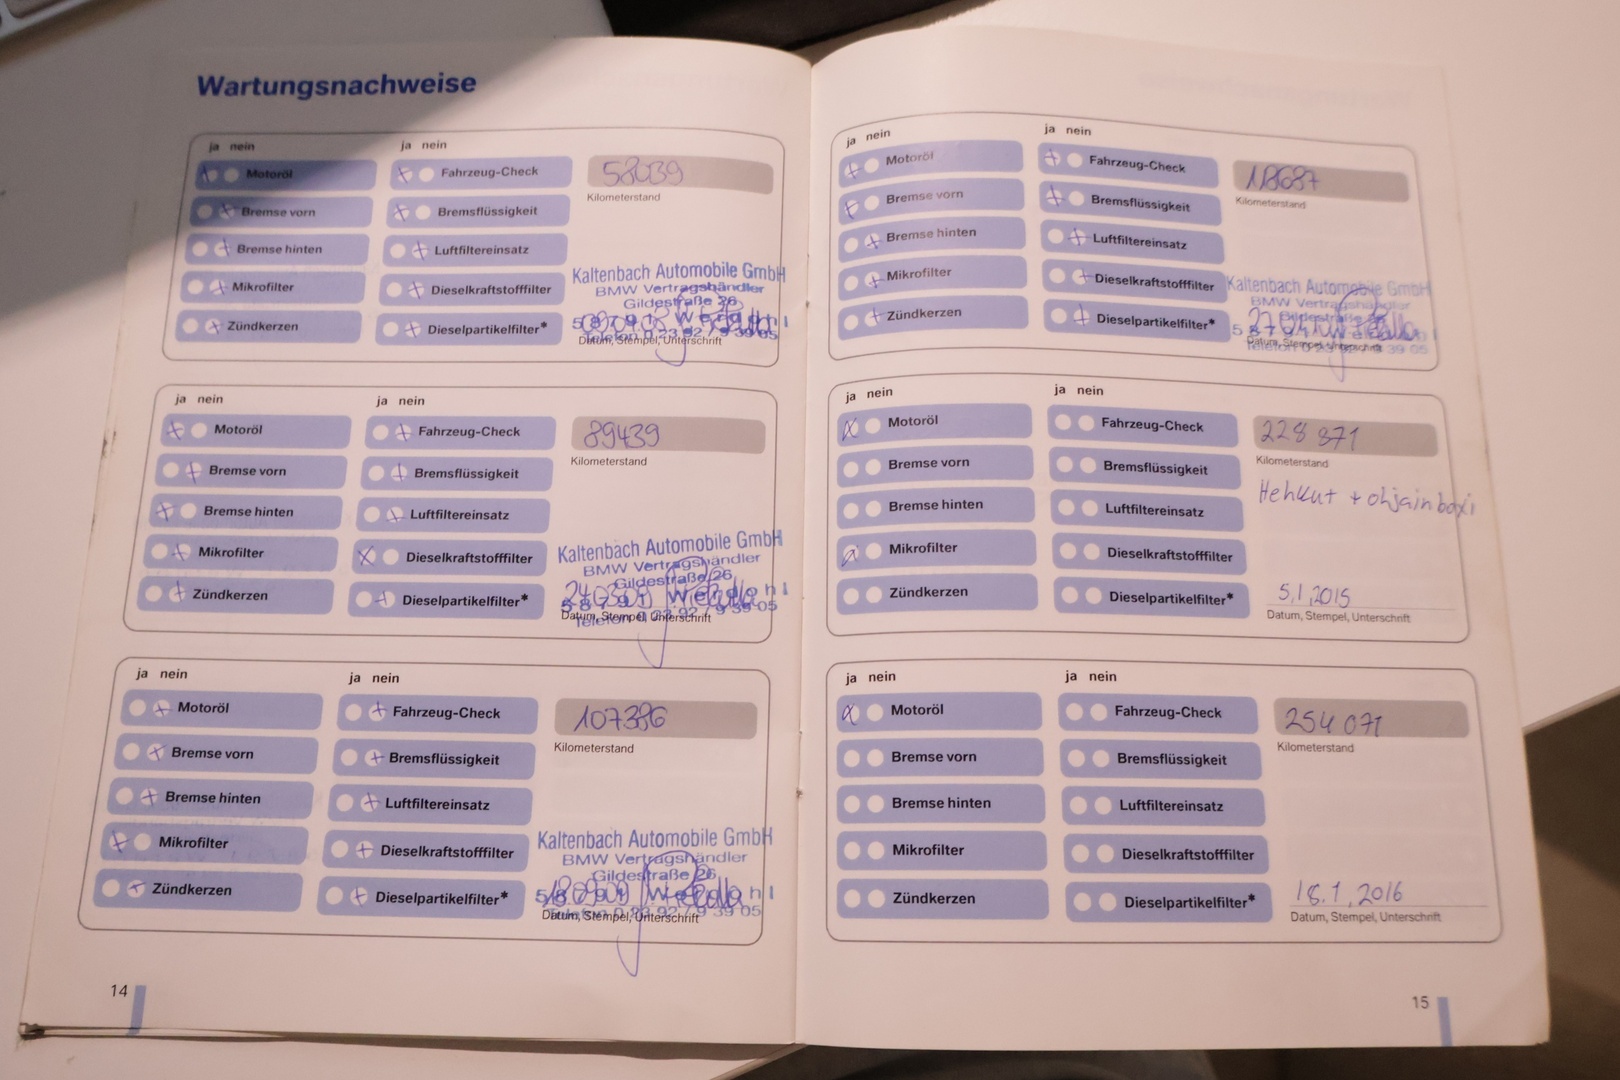 Wartungsnachweise
ja nein
ja nein
Motoröl
Fahrzeug-Check
58039
Bremse vorn
Bremsflüssigkeit
Kilometerstand
Bremse hinten
Luftfiltereinsatz
Mikrofilter
Dieselkraftstofffilter
Zündkerzen
Dieselpartikelfilter*
Kaltenbach Automobile GmbH
BMW Vertragshändler
Gildestraße 26
Datum, Stempel, Unterschrift
ja nein
ja nein
Motoröl
Fahrzeug-Check
89439
Bremse vorn
Bremsflüssigkeit
Kilometerstand
Bremse hinten
Luftfiltereinsatz
Mikrofilter
Dieselkraftstofffilter
Zündkerzen
Dieselpartikelfilter*
Kaltenbach Automobile GmbH
BMW Vertragshändler
Gildestraße 26
Datum, Stempel, Unterschrift
ja nein
ja nein
Motoröl
Fahrzeug-Check
107386
Bremse vorn
Bremsflüssigkeit
Kilometerstand
Bremse hinten
Luftfiltereinsatz
Mikrofilter
Dieselkraftstofffilter
Zündkerzen
Dieselpartikelfilter*
Kaltenbach Automobile GmbH
BMW Vertragshändler
Gildestraße 26
Datum, Stempel, Unterschrift
14
ja nein
ja nein
Motoröl
Fahrzeug-Check
Bremse vorn
Bremsflüssigkeit
Kilometerstand
Bremse hinten
Luftfiltereinsatz
Mikrofilter
Dieselkraftstofffilter
Zündkerzen
Dieselpartikelfilter*
Kaltenbach Automobile GmbH
BMW Vertragshändler
Gildestraße 26
Datum, Stempel, Unterschrift
ja nein
ja nein
Motoröl
Fahrzeug-Check
228 871
Bremse vorn
Bremsflüssigkeit
Kilometerstand
Bremse hinten
Luftfiltereinsatz
Hehkut + ohjainboxi
Mikrofilter
Dieselkraftstofffilter
Zündkerzen
Dieselpartikelfilter*
5.1.2015
Datum, Stempel, Unterschrift
ja nein
ja nein
Motoröl
Fahrzeug-Check
254 071
Bremse vorn
Bremsflüssigkeit
Kilometerstand
Bremse hinten
Luftfiltereinsatz
Mikrofilter
Dieselkraftstofffilter
Zündkerzen
Dieselpartikelfilter*
18.1.2016
Datum, Stempel, Unterschrift
15